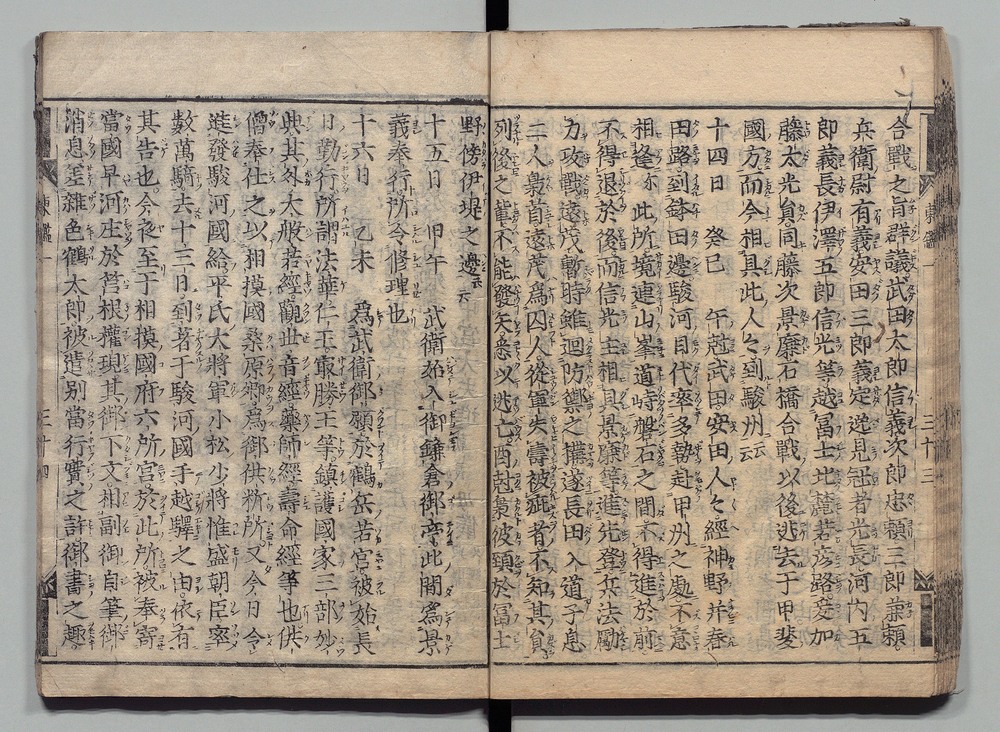 合戰之旨群議武田太郎信義次郎忠頼三郎兼頼
兵衛尉有義安田三郎義定逸見冠者光長河内五
郎義長伊澤五郎信光等越冨士北麓若彦路爰加
藤太光員同藤次景廉石橋合戰以後逃去于甲斐
國方而今相具此人々到駿州云云
十四日　癸巳　午尅武田安田人々經神野并春
田路到鉢田邊駿河目代率多勢赴甲州之處不意
相逢于此所境連山峯道峙磐石之間不得進於前
不得退於後而信光主相具景廉等進先登兵法勵
力攻戰遠茂暫時雖廻防禦之搆遂長田入道子息
二人梟首遠茂爲囚人從軍失壽被疵者不知其員
列後之輩不能發矢悉以逃亡酉尅梟彼頚於冨士
野傍伊堤之邊云云
十五日　甲午　武衛始入御鎌倉御亭此間爲景
義奉行所令修理也
十六日　乙未　爲武衛御願於鶴岳若宮被始長
日勤行所謂法華仁王最勝王等鎮護國家三部妙
典其外大般若經觀世音經藥師經壽命經等也供
僧奉仕之以相摸國桒原郷爲御供粁所又今日令
進發駿河國給平氏大將軍小松少將惟盛朝臣率
數萬騎去十三日到著于駿河國手越驛之由依有
其告也今夜至于相摸國府六所宮於此所被奉寄
當國早河庄於筥根權現其御下文相副御自筆御
消息差雜色鶴太郎被遣別當行實之許御書之趣
東鑑一
三十三
東鑑一
三十四